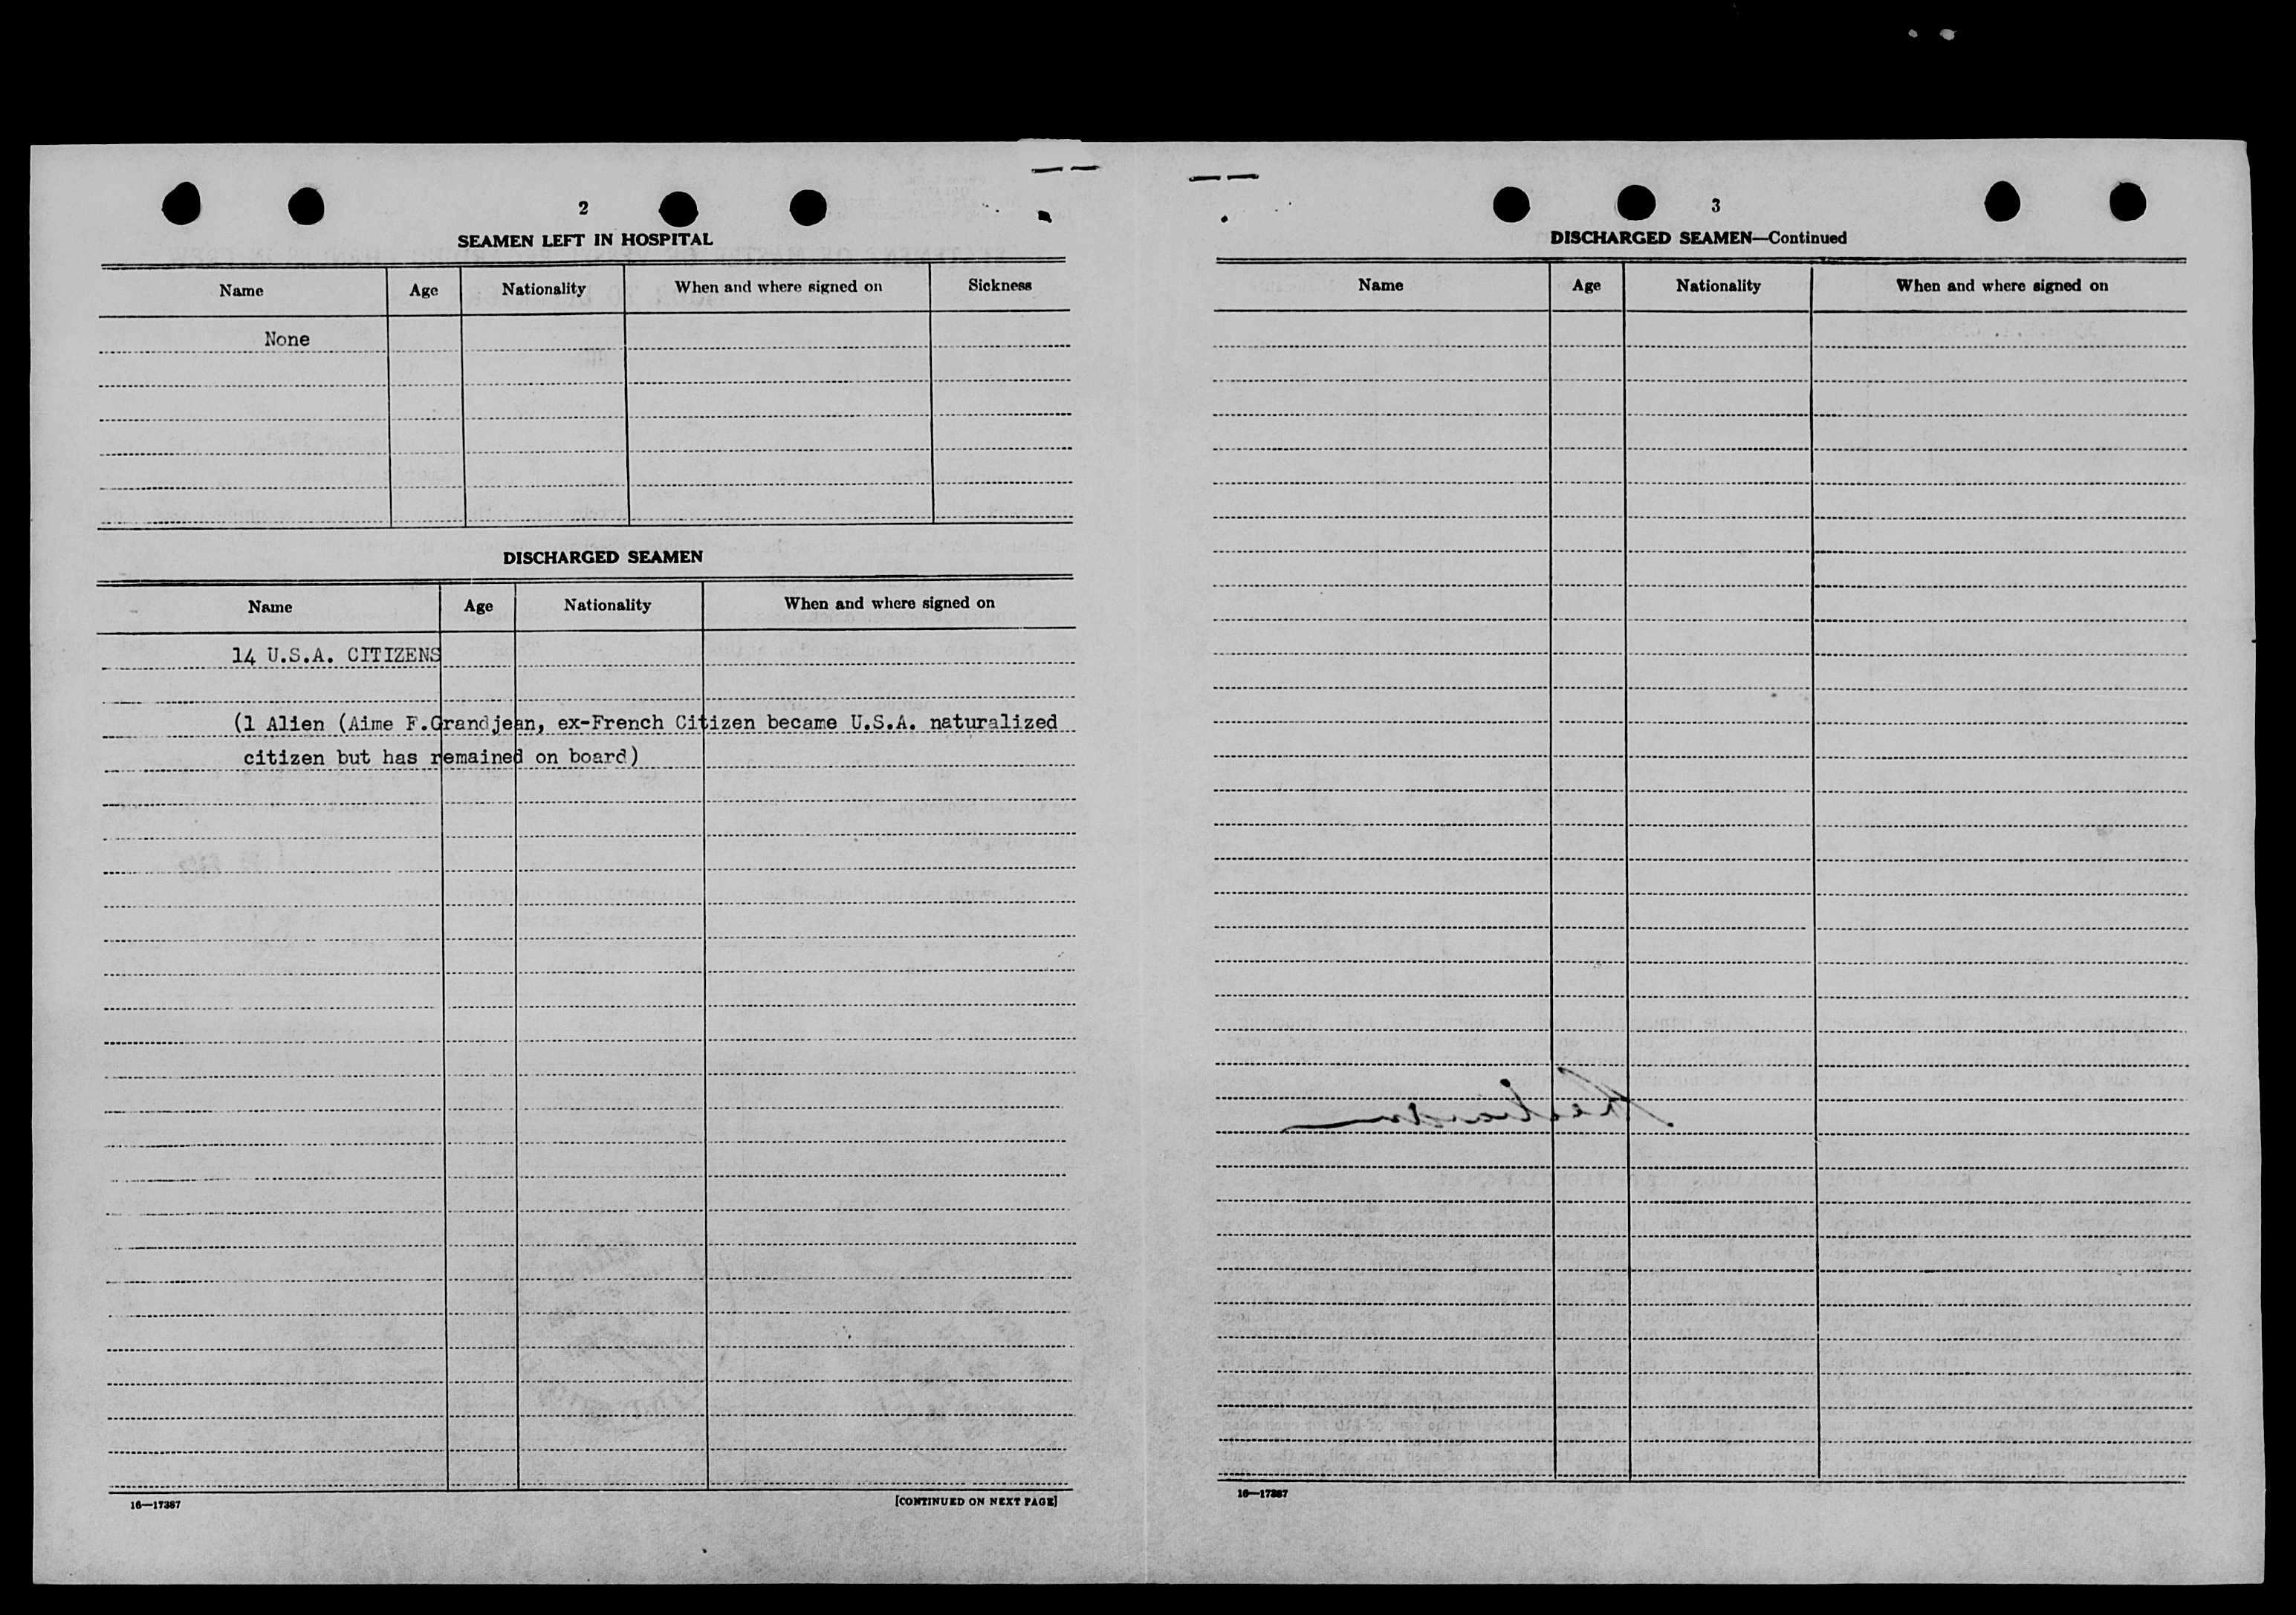 2
SEAMEN LEFT IN HOSPITAL
Name Age Nationality When and where signed on Sickness
None
DISCHARGED SEAMEN
Name Age Nationality When and where signed on
14 U.S.A. CITIZENS
(1 Alien (Aime F.Grandjean, ex-French Citizen became U.S.A. naturalized
citizen but has remained on board)
16—17387 [CONTINUED ON NEXT PAGE]
3
DISCHARGED SEAMEN—Continued
Name Age Nationality When and where signed on
16—17387